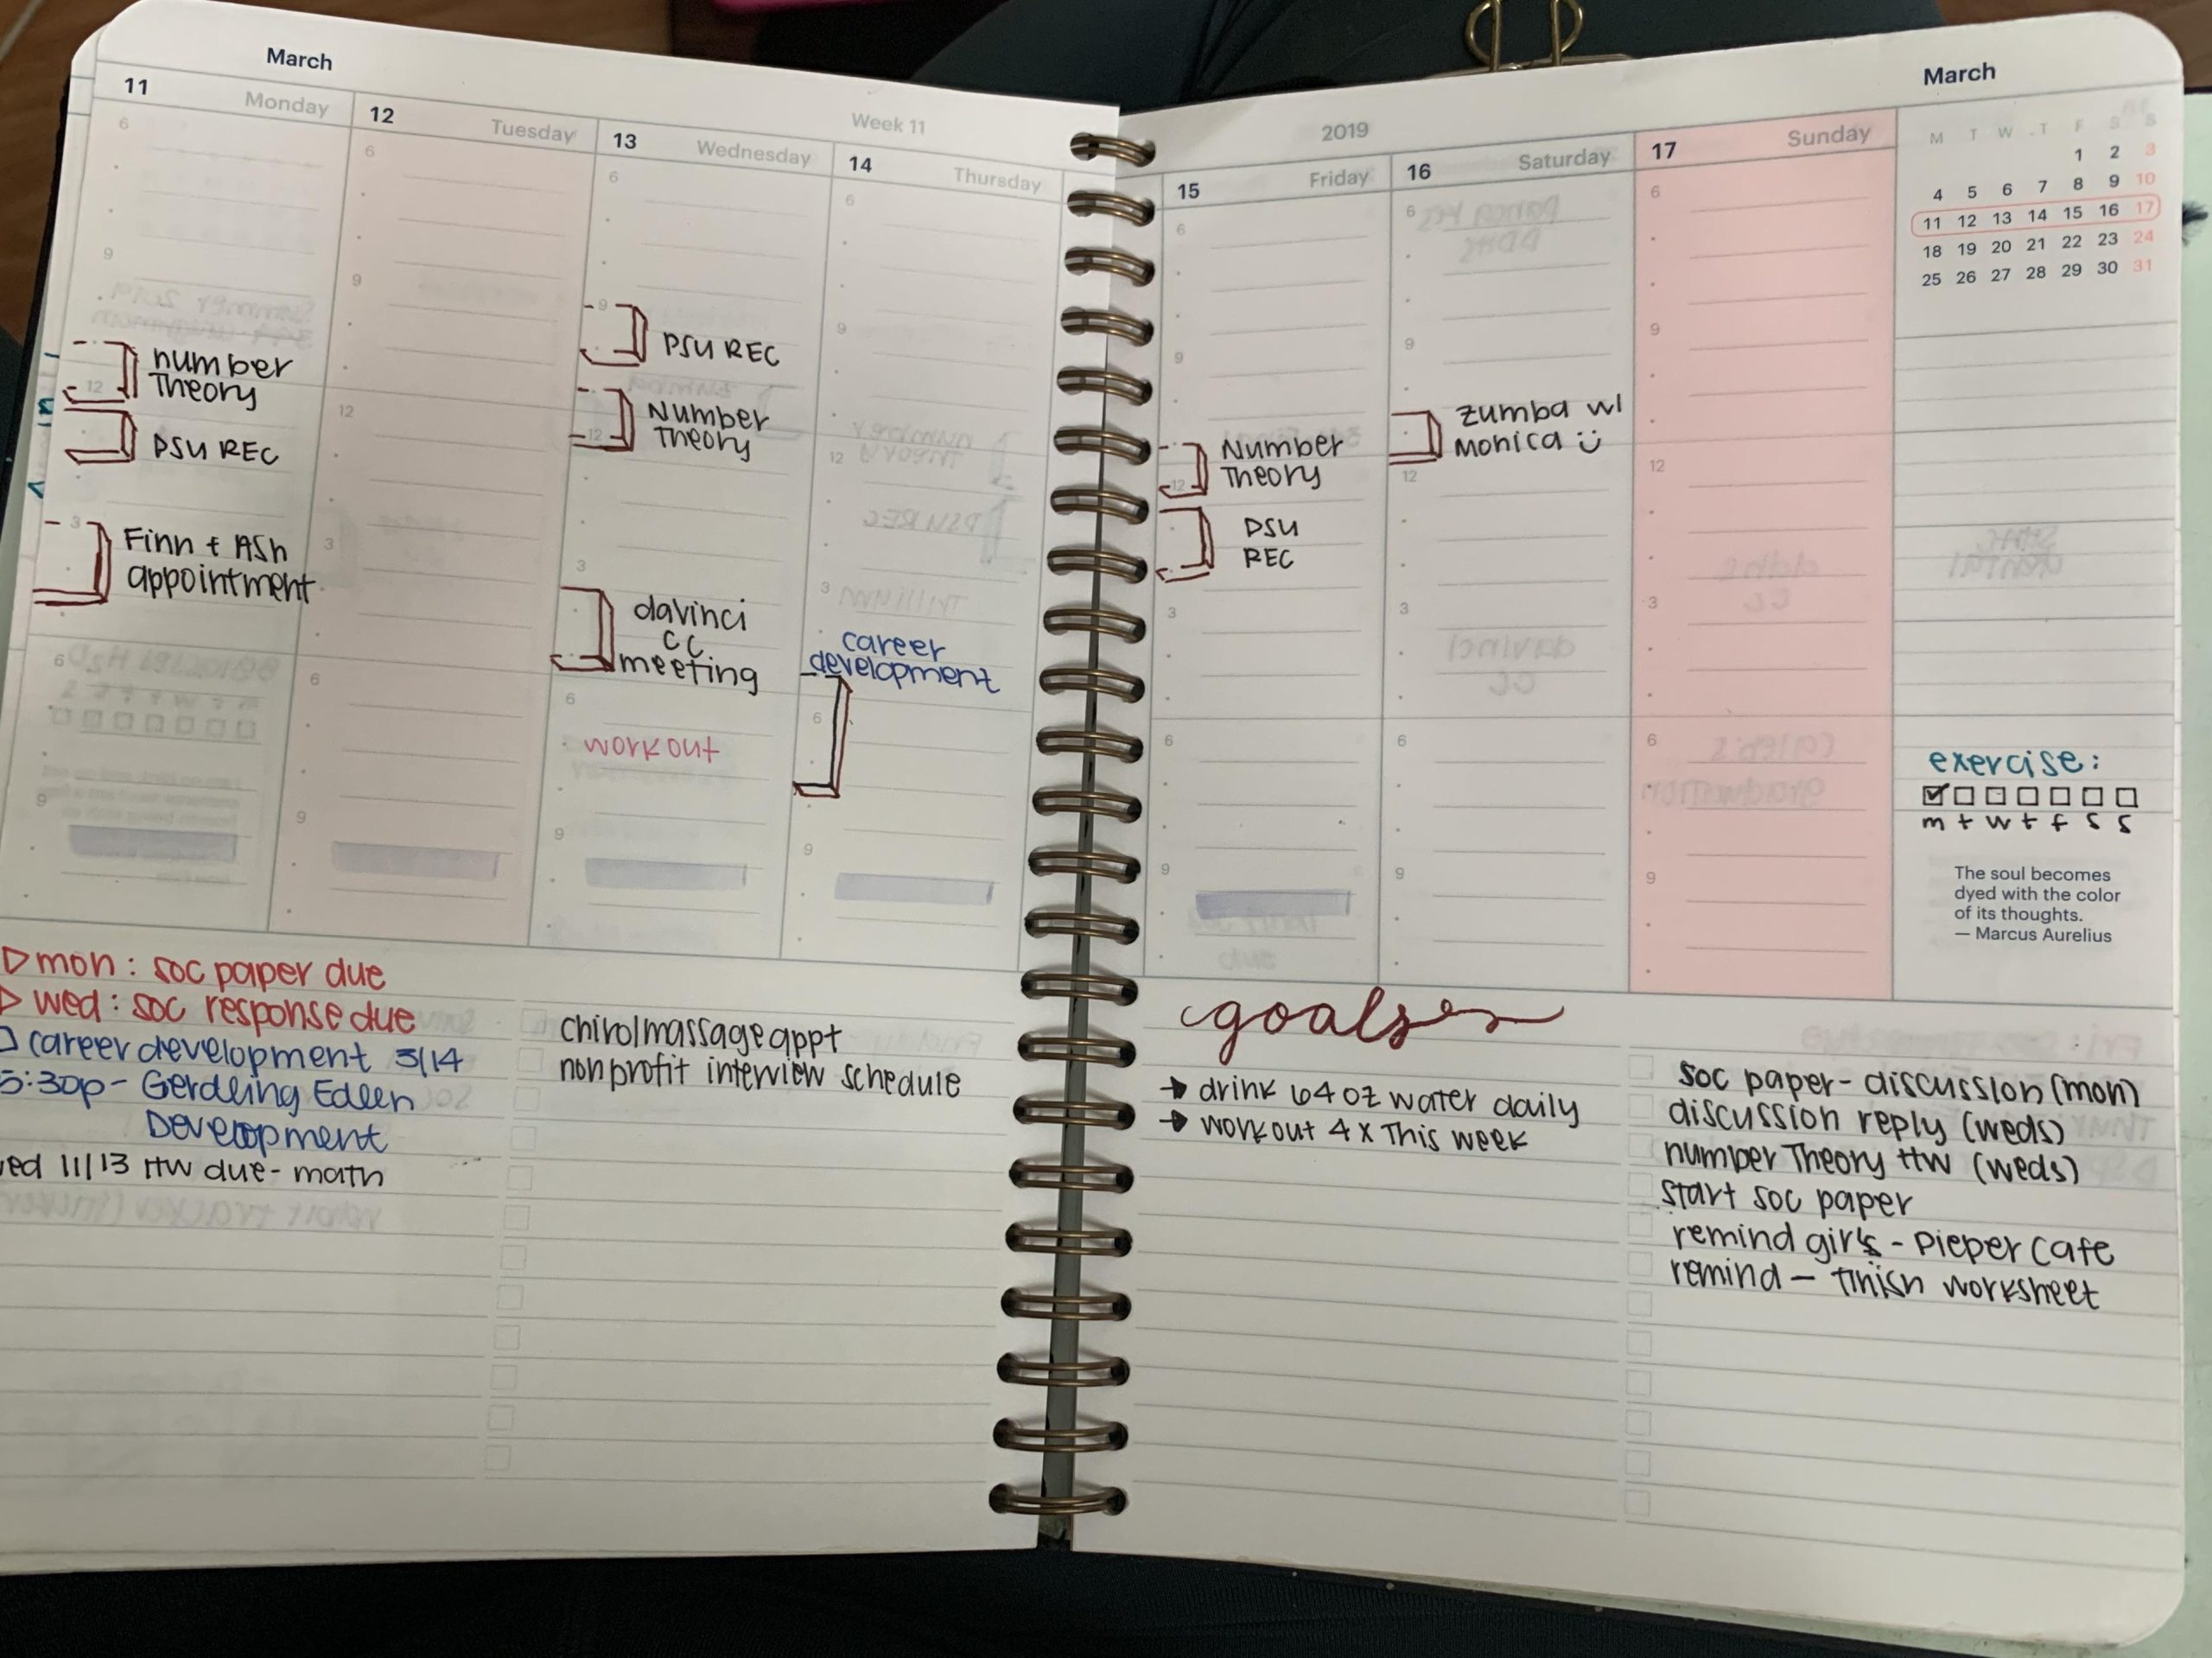 March
11 Monday
12 Tuesday
13 Wednesday
Week 11
14 Thursday
6
9
number
Theory
12
PSU REC
3
Finn + Ash
appointment
6
9
6
9
12
3
6
9
6
9
PSU REC
Number
Theory
12
3
davinci
CC
meeting
6
workout
9
6
9
12
3
career
development
6
9
mon: soc paper due
wed: soc response due
career development 3/14
5:30p - Gerdling Edlen
Development
11/13 HW due - math
chiro/massage appt
nonprofit interview schedule
2019
March
15 Friday
16 Saturday
17 Sunday
6
9
Number
Theory
12
PSU
REC
3
6
9
6
9
Zumba w/
Monica
12
3
6
9
6
9
12
3
6
9
M T W T F S S
1 2 3
4 5 6 7 8 9 10
11 12 13 14 15 16 17
18 19 20 21 22 23 24
25 26 27 28 29 30 31
exercise:
m t w t f s s
The soul becomes
dyed with the color
of its thoughts.
— Marcus Aurelius
goals
→ drink 64 oz water daily
→ workout 4x This week
soc paper - discussion (mon)
discussion reply (weds)
number Theory HW (weds)
start soc paper
remind girls - Pieper Cafe
remind - finish worksheet